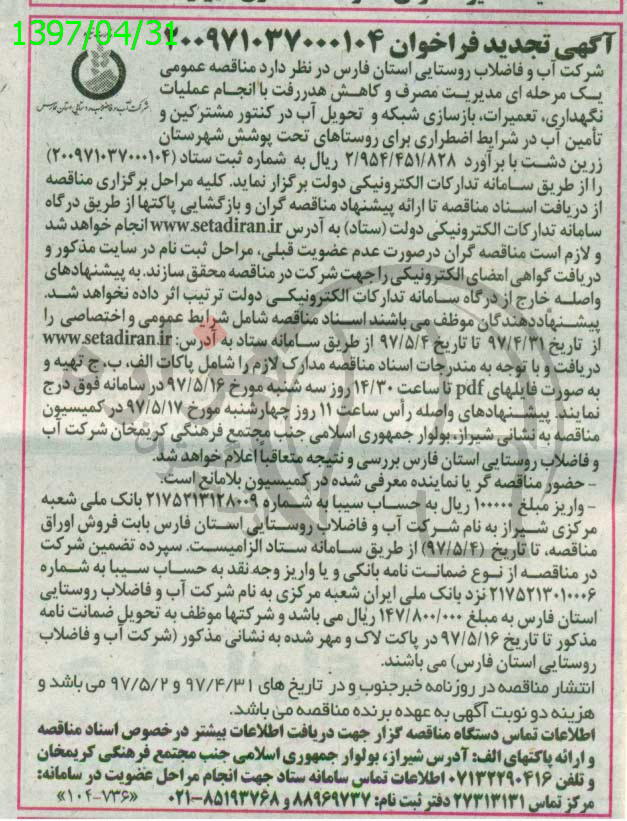 1397/04/31
آگهی تجدید فراخوان ۲۰۰۹۷۱۰۳۷۰۰۰۱۰۴
شرکت آب و فاضلاب روستایی استان فارس در نظر دارد مناقصه عمومی
یک مرحله ای مدیریت مصرف و کاهش هدررفت با انجام عملیات
نگهداری، تعمیرات، بازسازی شبکه و تحویل آب در کنتور مشترکین و
تأمین آب در شرایط اضطراری برای روستاهای تحت پوشش شهرستان
زرین دشت با برآورد ۲/۹۵۴/۴۵۱/۸۲۸ ریال به شماره ثبت ستاد (۲۰۰۹۷۱۰۳۷۰۰۰۱۰۴)
را از طریق سامانه تدارکات الکترونیکی دولت برگزار نماید. کلیه مراحل برگزاری مناقصه
از دریافت اسناد مناقصه تا ارائه پیشنهاد مناقصه گران و بازگشایی پاکتها از طریق درگاه
سامانه تدارکات الکترونیکی دولت (ستاد) به آدرس www.setadiran.ir انجام خواهد شد
و لازم است مناقصه گران درصورت عدم عضویت قبلی، مراحل ثبت نام در سایت مذکور و
دریافت گواهی امضای الکترونیکی را جهت شرکت در مناقصه محقق سازند. به پیشنهادهای
واصله خارج از درگاه سامانه تدارکات الکترونیکی دولت ترتیب اثر داده نخواهد شد.
پیشنهاددهندگان موظف می باشند اسناد مناقصه شامل شرایط عمومی و اختصاصی را
از تاریخ ۹۷/۴/۳۱ تا تاریخ ۹۷/۵/۴ از طریق سامانه ستاد به آدرس: www.setadiran.ir
دریافت و با توجه به مندرجات اسناد مناقصه مدارک لازم را شامل پاکات الف، ب، ج تهیه و
به صورت فایلهای pdf تا ساعت ۱۴/۳۰ روز سه شنبه مورخ ۹۷/۵/۱۶ در سامانه فوق درج
نمایند. پیشنهادهای واصله رأس ساعت ۱۱ روز چهارشنبه مورخ ۹۷/۵/۱۷ در کمیسیون
مناقصه به نشانی شیراز، بولوار جمهوری اسلامی جنب مجتمع فرهنگی کریمخان شرکت آب
و فاضلاب روستایی استان فارس بررسی و نتیجه متعاقباً اعلام خواهد شد.
- حضور مناقصه گر یا نماینده معرفی شده در کمیسیون بلامانع است.
- واریز مبلغ ۱۰۰۰۰۰۰ ریال به حساب سیبا به شماره ۲۱۷۵۲۱۳۱۲۸۰۰۹ بانک ملی شعبه
مرکزی شیراز به نام شرکت آب و فاضلاب روستایی استان فارس بابت فروش اوراق
مناقصه، تا تاریخ (۹۷/۵/۴) از طریق سامانه ستاد الزامیست. سپرده تضمین شرکت
در مناقصه از نوع ضمانت نامه بانکی و یا واریز وجه نقد به حساب سیبا به شماره
۲۱۷۵۲۱۳۰۱۰۰۰۶ نزد بانک ملی ایران شعبه مرکزی به نام شرکت آب و فاضلاب روستایی
استان فارس به مبلغ ۱۴۷/۸۰۰/۰۰۰ ریال می باشد و شرکتها موظف به تحویل ضمانت نامه
مذکور تا تاریخ ۹۷/۵/۱۶ در پاکت لاک و مهر شده به نشانی مذکور (شرکت آب و فاضلاب
روستایی استان فارس) می باشند.
انتشار مناقصه در روزنامه خبرجنوب و در تاریخ های ۹۷/۴/۳۱ و ۹۷/۵/۲ می باشد و
هزینه دو نوبت آگهی به عهده برنده مناقصه می باشد.
اطلاعات تماس دستگاه مناقصه گزار جهت دریافت اطلاعات بیشتر در خصوص اسناد مناقصه
و ارائه پاکتهای الف: آدرس شیراز، بولوار جمهوری اسلامی جنب مجتمع فرهنگی کریمخان
و تلفن ۰۷۱۳۲۲۹۰۴۱۶ اطلاعات تماس سامانه ستاد جهت انجام مراحل عضویت در سامانه:
مرکز تماس ۲۷۳۱۳۱۳۱ دفتر ثبت نام: ۸۸۹۶۹۷۳۷ و ۸۵۱۹۳۷۶۸-۰۲۱ «۱۰۴-۷۳۶»
شرکت آب و فاضلاب روستایی استان فارس